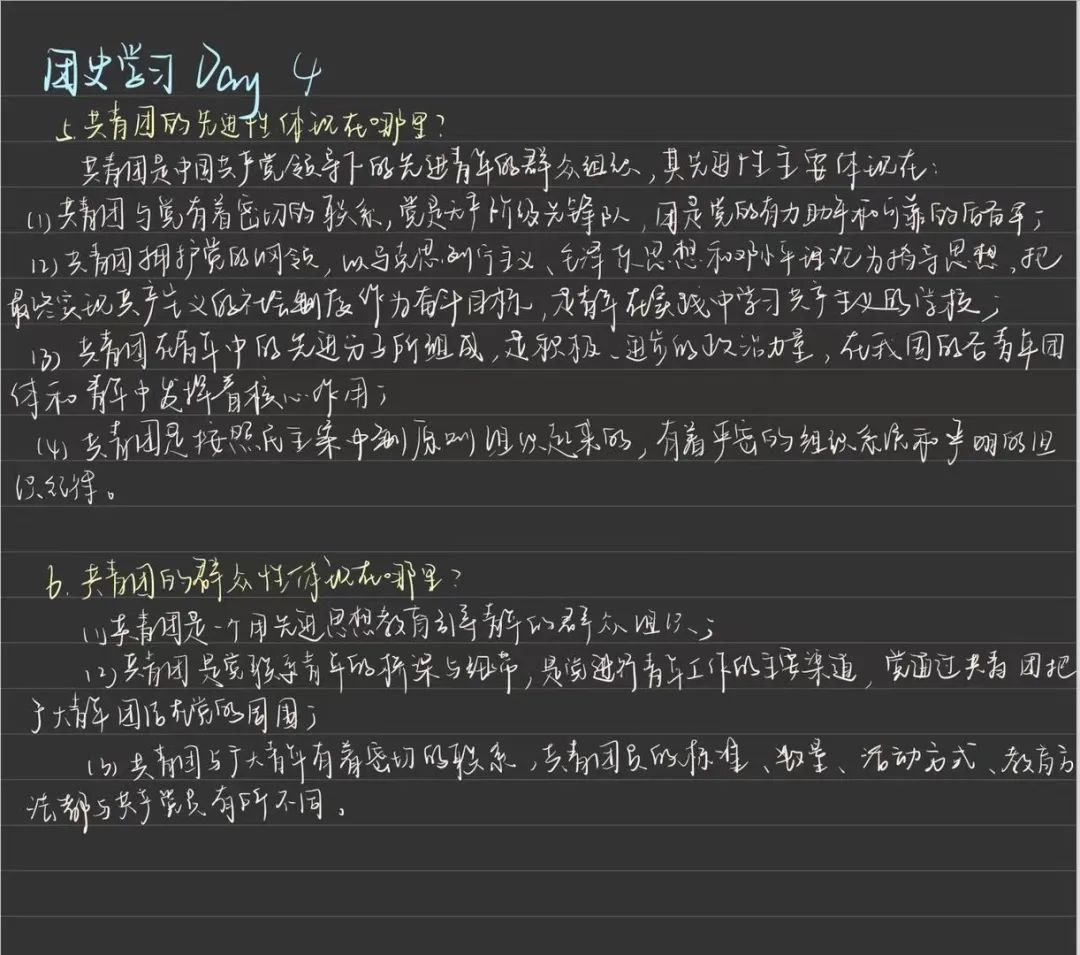 团史学习 Day 4
5. 共青团的先进性体现在哪里?
共青团是中国共产党领导下的先进青年的群众组织,其先进性主要体现在:
(1) 共青团与党有着密切的联系,党是无产阶级先锋队,团是党的有力助手和可靠的后备军;
(2) 共青团拥护党的纲领,以马克思列宁主义、毛泽东思想和邓小平理论为指导思想,把
最终实现共产主义的社会制度作为奋斗目标,是青年在实践中学习共产主义的学校;
(3) 共青团在青年中的先进分子所组成,是积极、进步的政治力量,在我国的各青年团
体和青年中发挥着核心作用;
(4) 共青团是按照民主集中制原则组织起来的,有着严密的组织系统和严明的组
织纪律。
6. 共青团的群众性体现在哪里?
(1) 共青团是一个用先进思想教育引导青年的群众组织;
(2) 共青团是党联系青年的桥梁与纽带,是党进行青年工作的主要渠道,党通过共青团把
广大青年团结在党的周围;
(3) 共青团与广大青年有着密切的联系,共青团员的标准、数量、活动方式、教育方
法都与共产党员有所不同。